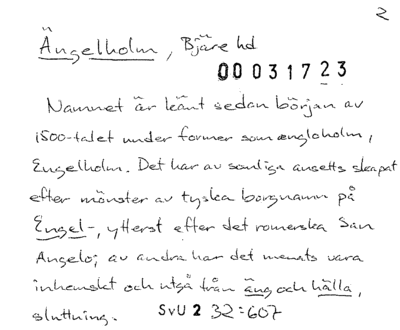 2
Ängelholm, Bjäre hd
00031723
Namnet är känt sedan början av
1500-talet under former som engloholm,
Engelholm. Det har av somliga ansetts skapat
efter mönster av tyska borgnamn på
Engel-, ytterst efter det romerska San
Angelo; av andra har det menats vara
inhemskt och utgå från äng och hälla,
sluttning. SvU 2 32:607